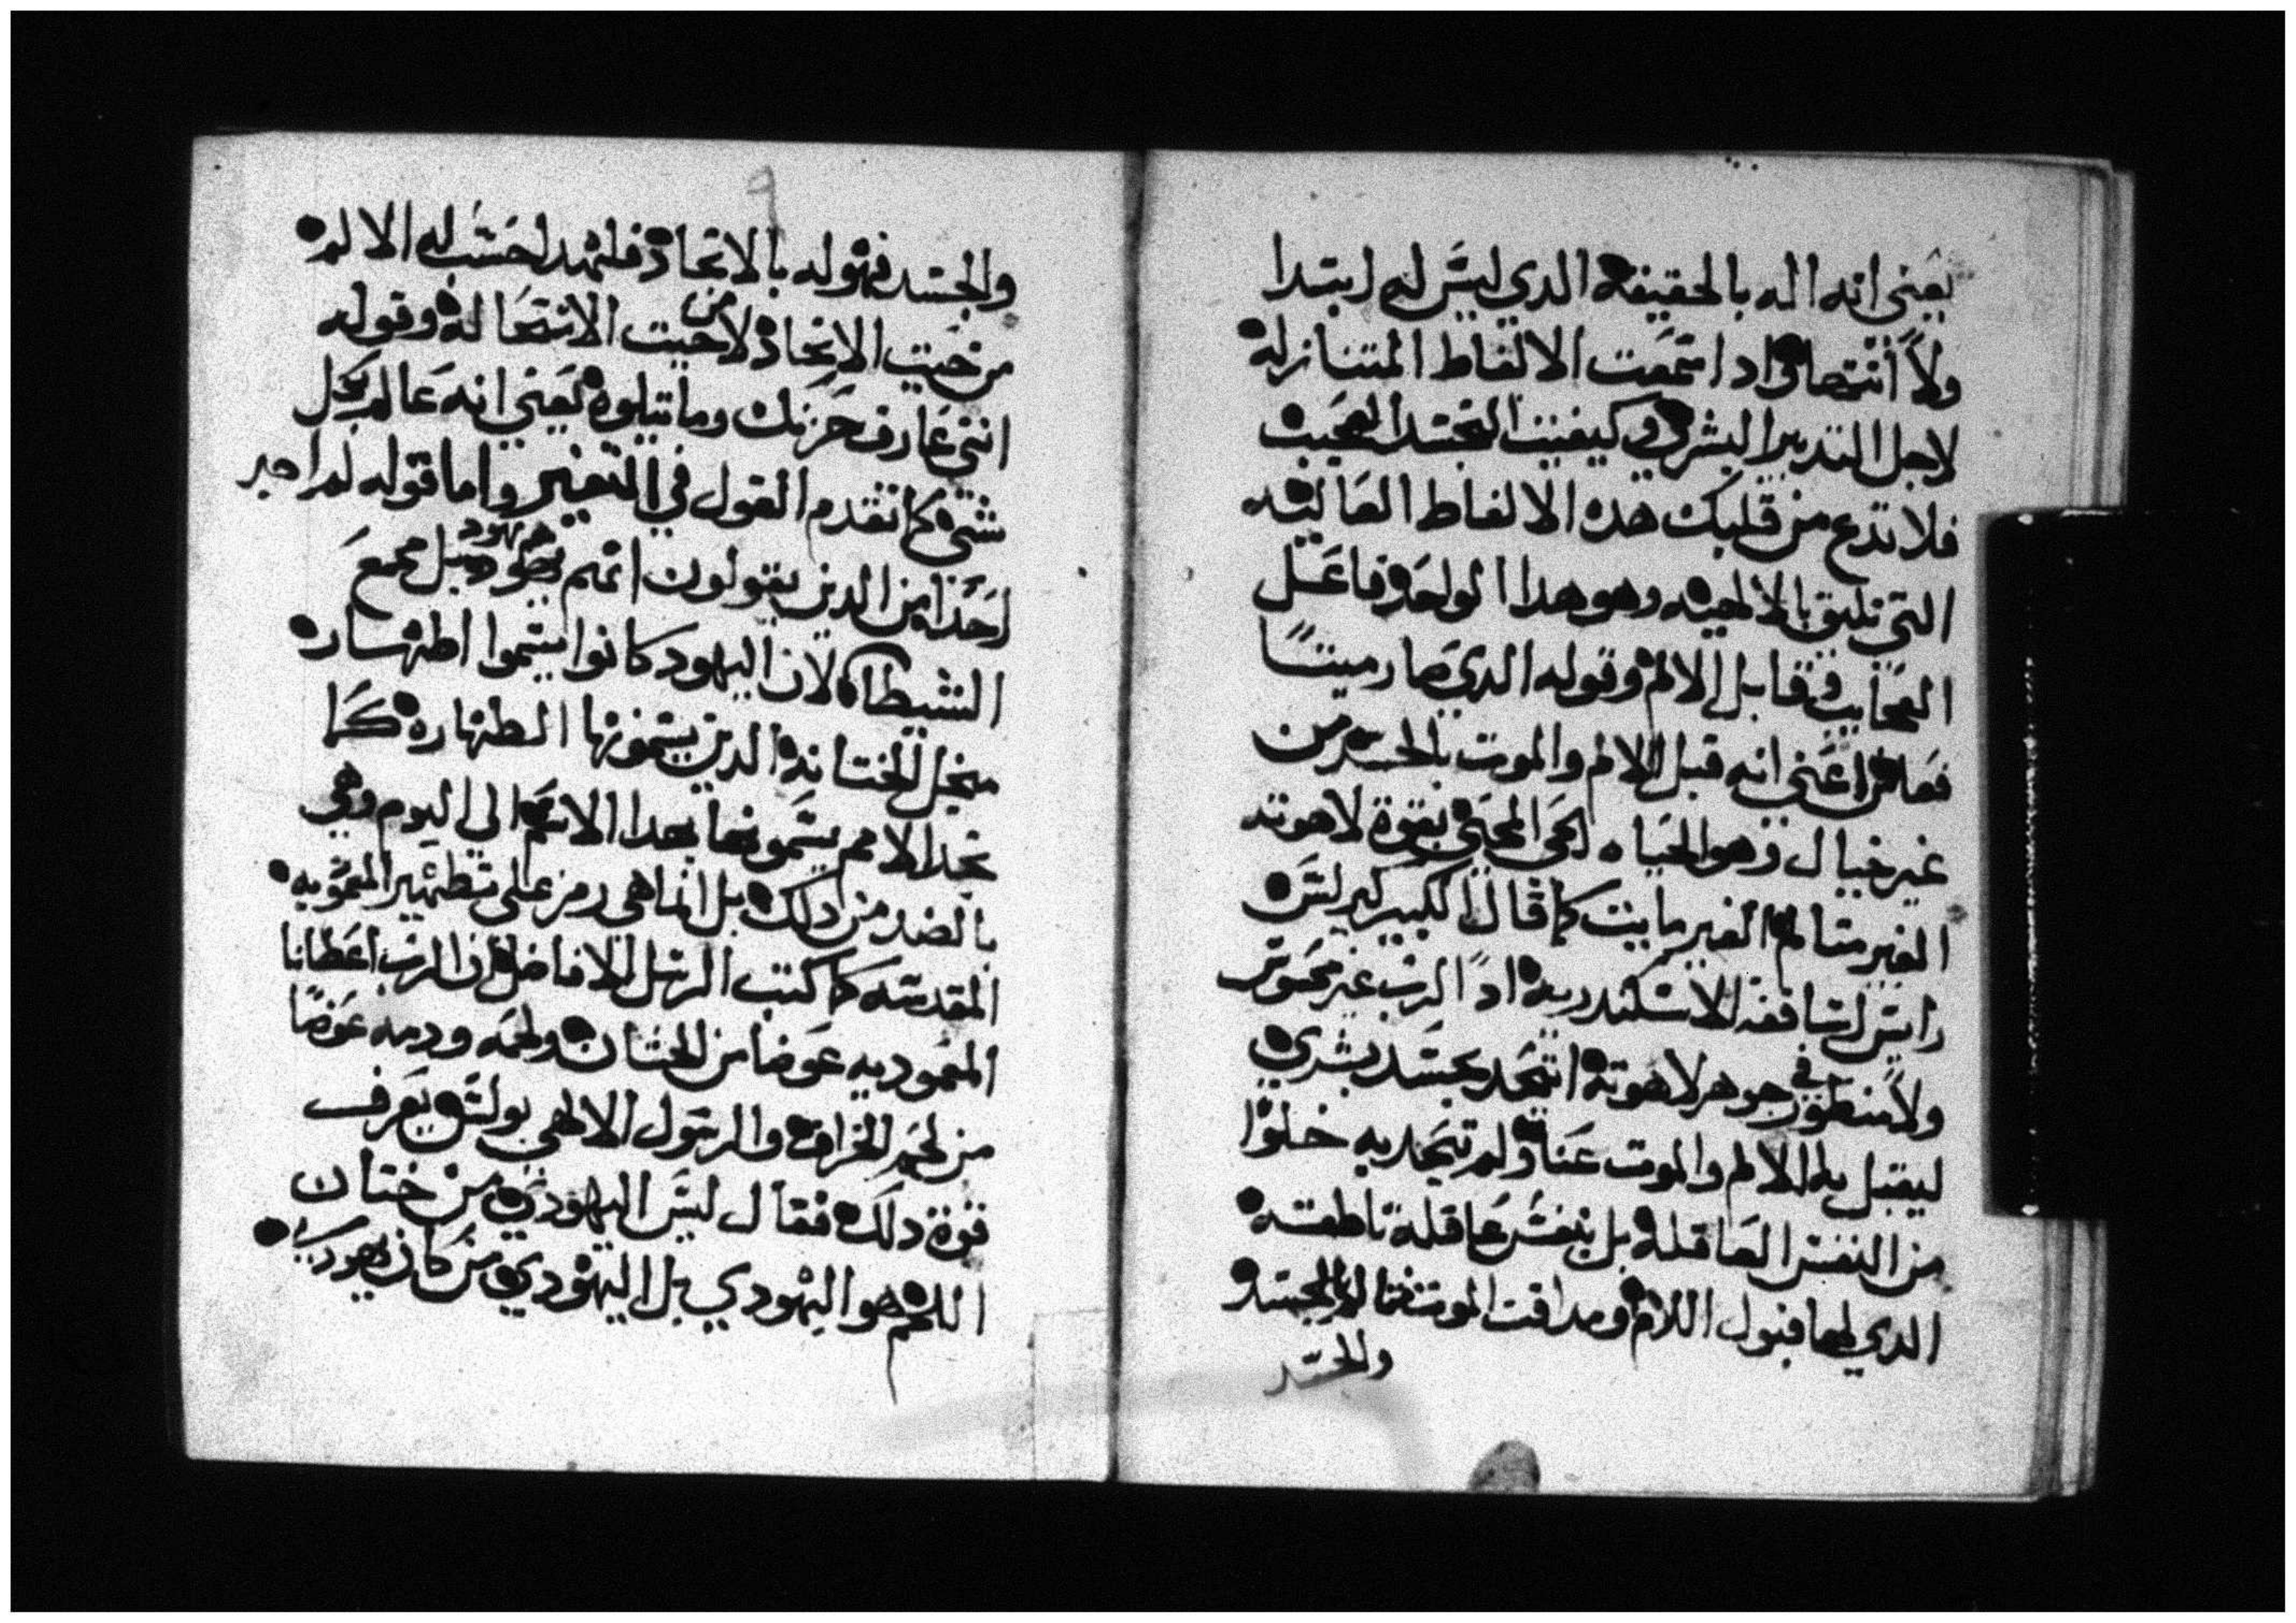 يعني انه اله بالحقيقه الدي ليس له ابتدا
ولاً انتها وادا سمعت الالفاط المتنازله
لاجل التدبير البشري وكيفيت التجسد العجيب
فلا تدع من قلبك هده الالفاط العاليه
التي تليق بالالهيه وهو هدا الواحد فاعل
العجايب وقابل الالام وقوله الدي صار ميتًا
فعاش اعني انه قبل الالام والموت بالجسد من
غير خيال وهو الحياه الحي المحيي بقوة لاهوته
الغير متالم الغير مايت كما قال الكبير كيرلس
رايس اساقفة الاسكندريه ادً الرب غير محسوس
ولا منطور في جوهر لاهوته اتحد بجسد بشري
ليقبل به الالام والموت عنا ولم يتحد به خلوًا
من النفس العاقله بل بنفس عاقلة ناطقه
الدي لهما قبول اللام ومداقت الموت فما للجسد
والجسد
والجسد فهو له بالاتحاد فلهدا حسب له الالم
من حيت الاتحاد لا من حيت الانتقاله وقوله
انني عارف حزنك وما تبلوه يعني انه عالم بكل
شي كما تقدم القول في التفسير واما قوله لم اجد
احدا من الدين يقولون انهم يهود بل مجمع
الشيطان لان اليهود كانوا يسموا اطهار
منجل الختانه الدين يسمونها الطهاره كما
نجد الامم يسمونها بهدا الاسم الى اليوم وهي
بالضد من دلك بل انما هي رمز على تطهير المعموديه
المقدسه كما كتب الرسل الافاضل ان الرب اعطانا
المعموديه عوضا من الختان ولحمه ودمه عوضًا
من لحم الخراف والرسول الالهي بولس يعرف
قوة دلك فقال ليس اليهودي من ختان
اللحم هو اليهودي بل اليهودي من كان يهوديا